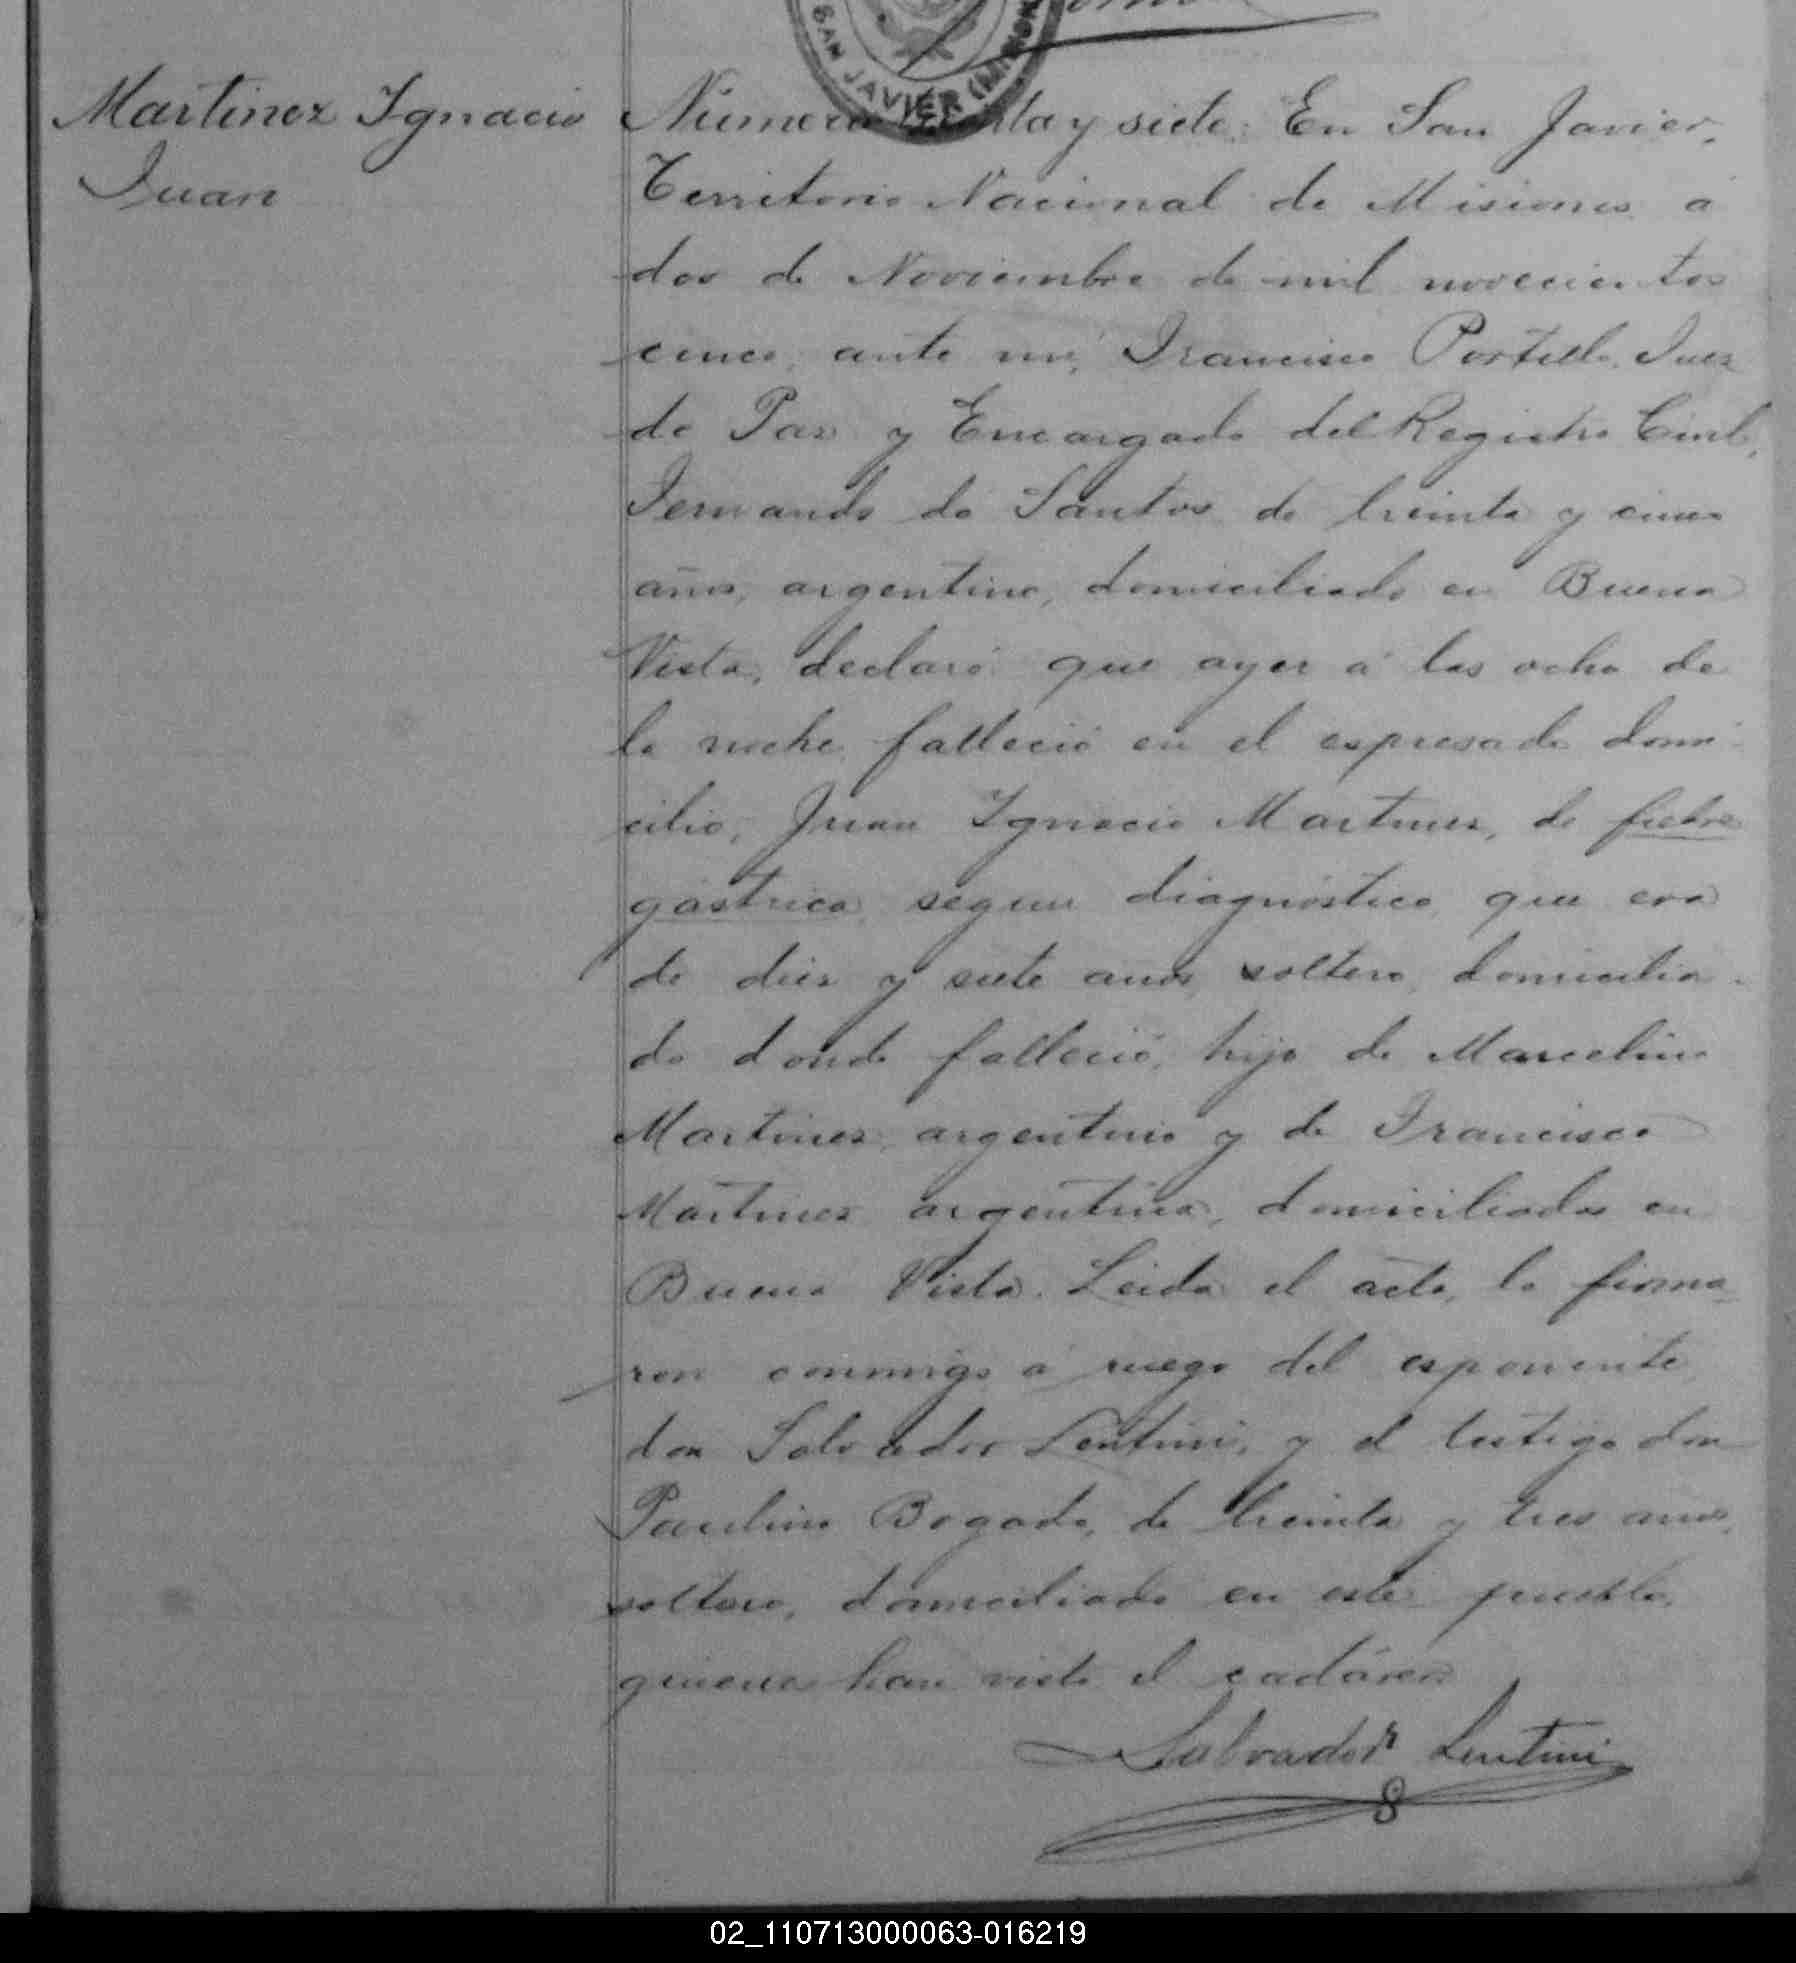 SAN JAVIER (MISION
Martinez Ignacio
Juan
Número ta y siete: En San Javier,
Territorio Nacional de Misiones á
dos de Noviembre de mil novecientos
cinco, ante mi, Francisco Portillo, Juez
de Paz y Encargado del Registro Civil,
Fernando do Santos de treinta y cinco
años, argentino, domiciliado en Buena
Vista, declaró: que ayer á las ocho de
la noche falleció en el espresado domi-
cilio, Juan Ignacio Martinez, de fiebre
gástrica segun diagnóstico, que era
de diez y siete años, soltero, domicilia-
do donde falleció, hijo de Marcelino
Martinez, argentino y de Francisca
Martinez argentina, domiciliados en
Buena Vista. Leida el acta, la firma-
ron conmigo á ruego del esponente
don Salvador Lentini, y el testigo don
Paulino Bogado, de treinta y tres años,
soltero, domiciliado en este pueblo,
quienes han visto el cadáver
Salvador Lentini
02_110713000063-016219